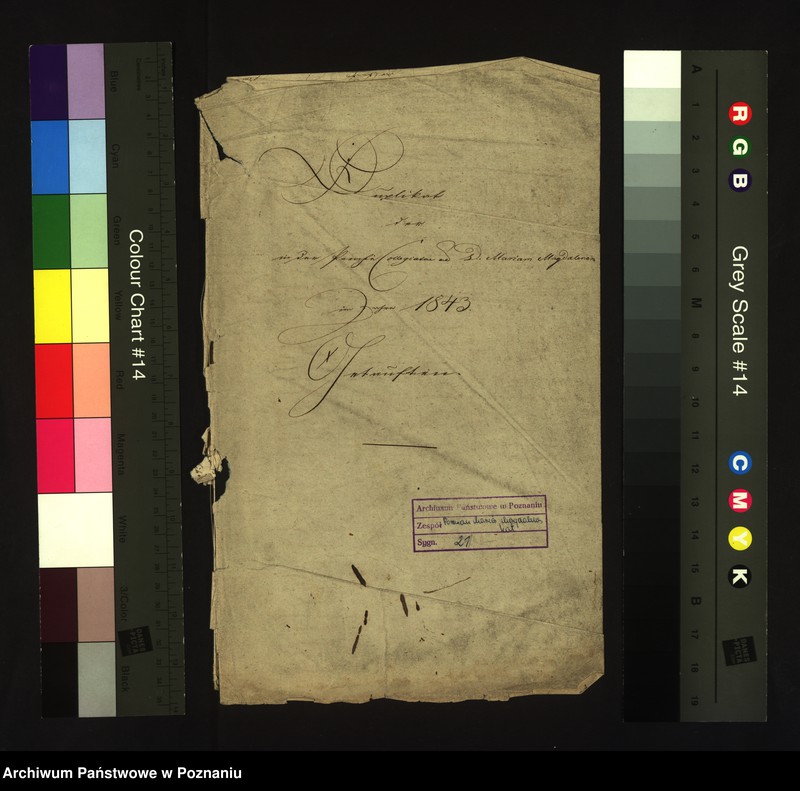 Duplikat
der
in der Pfarre Collegiatae ad S. Mariam Magdalenam
im Jahre 1843.
Getauften.
Archiwum Państwowe w Poznaniu
Zespół Poznań Maria Magdalena
kat.
Sygn. 21
Colour Chart #14
Blue
Cyan
Green
Yellow
Red
Magenta
White
3/Color
Black
Grey Scale #14
R
G
B
C
M
Y
K
A
1
2
3
4
5
6
M
8
9
10
11
12
13
14
15
B
17
18
19
DANES
PICTA
Archiwum Państwowe w Poznaniu